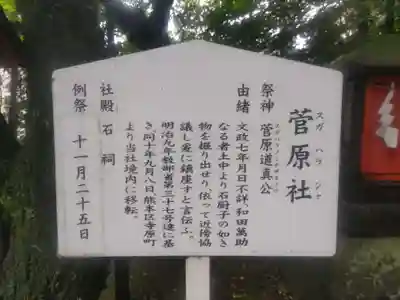 菅原社
スガハラシャ
祭神 菅原道真公
スガハラミチザネコウ
由緒 文政七年月日不詳、和田萬助
なる者土中より石厨子の如き
物を掘り出せり、依って近傍協
議し爰に鎮座すと言伝ふ。
明治九年教部省第三十七号達に基
き同十年九月八日熊本区寺原町
より当社境内に移転。
社殿 石祠
例祭 十一月二十五日